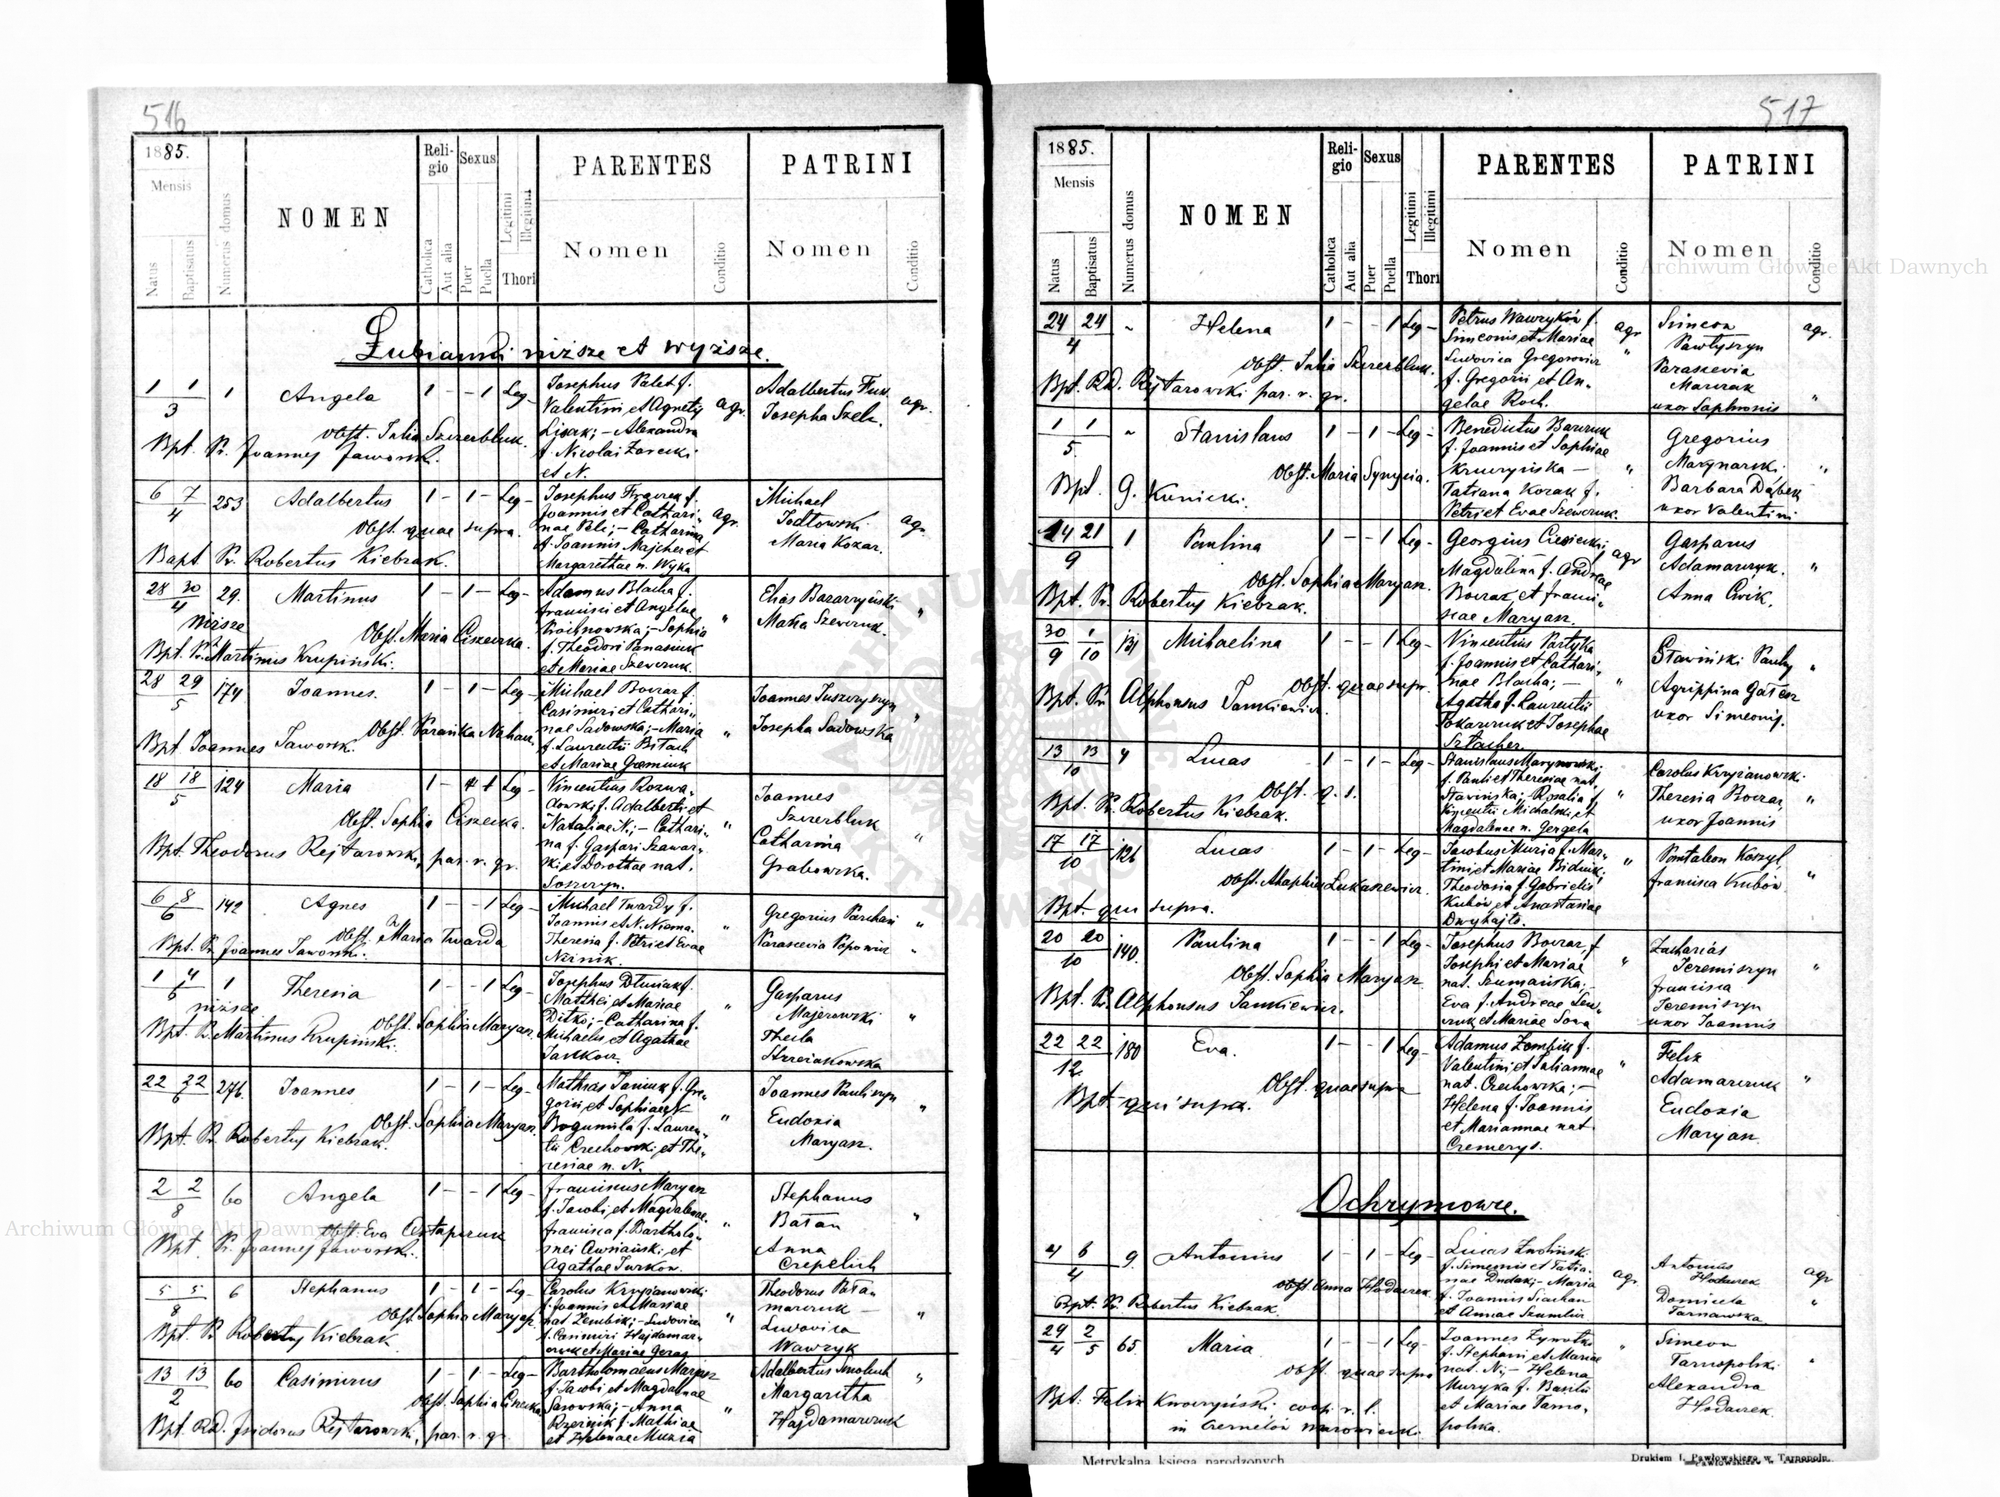 516
1885.
Mensis
Natus
Baptisatus
Numerus domus
NOMEN
Reli-
gio
Catholica
Aut alia
Sexus
Puer
Puella
Legitimi
Illegitimi
Thori
PARENTES
Nomen
Conditio
PATRINI
Nomen
Conditio
Łubianki niższe et wyższe.
1 1
3
1
Angela
1 – – 1 Leg –
Josephus Palet f.
Valentini et Agnetis
Lisak; – Alexandra
f. Nicolai Zarecki
et N.
agr.
Adalbertus
Josepha Szelc.
agr.
Obst. Julia Szczerbluk.
Bpt. Pr. Joannes Jaworsk.
6 7
4
253
Adalbertus
1 – 1 – Leg –
Josephus
Joannis et Cathari-
nae Pelc; – Catharina
f. Joannis Majcher et
Margarethae n. Wyka
agr.
Michael
Jodłowski
Maria Kozar.
agr.
Obst. quae supra.
Bapt. Pr. Robertus Kiebzak.
28 30
4
29.
niższe
Martinus
1 – 1 – Leg –
Adamus Blacha f.
Francisci et Angelae
Sophia
f. Theodori Panasiuk
et Mariae Szewczuk
"
Elias
Maria Szewczuk.
"
Obst. Maria Ciszecka.
Bpt. Pr. Martinus Krupiński.
28 29
5
174
Joannes.
1 – 1 – Leg –
Michael Boczar f.
Casimiri et Cathari-
nae Sadowska; – Maria
f. Laurentii
et Mariae
"
Joannes Juszczyszyn
Josepha Sadowska
"
Bpt. Joannes Jaworsk.
18 18
5
124
Maria
1 – 1 Leg –
Vincentius Rozwa-
dowski f. Adalberti et
Nataliae N; – Cathari-
na f. Gaspari Szawar-
ski et Dorothae nat.
"
Joannes
Szczerbluk
Catharina
Grabowska.
"
Obst. Sophia Ciszecka.
Bpt. Theodorus Rejtarowski, par. r. gr.
6 8
6
142
Agnes
1 – – 1 Leg –
Michael Twardy f.
Joannis et N. Niema.
Theresia f. Petri et Evae
"
Gregorius
Parascevia Popowicz
"
Obst. Maria Twarda
Bpt. Pr. Joannes Jaworsk.
1 4
6
1
niższe
Theresia
1 – – 1 Leg –
Josephus Dłuniak f.
Matthei et Mariae
Ditko; – Catharina f.
Michaelis et Agathae
"
Gasparus
Majerowski
Thecla
"
Obst. Sophia Maryan.
Bpt. Pr. Martinus Krupiński.
22 22
6
276.
Joannes
1 – 1 – Leg –
Mathias Janiuk f. Gre-
gorii et Sophiae N
Bogumila f. Lauren-
tii Czechowski et The-
resiae n. N.
"
Joannes Pauliszyn
Eudoxia
Maryan.
"
Obst. Sophia Maryan.
Bpt. Pr. Robertus Kiebzak.
2 2
8
60
Angela
1 – – 1 Leg –
Franciscus Maryan
f. Jacobi et Magdalenae.
Francisca f. Bartholo-
mei et
Agathae Jurkow.
"
Stephanus
Bałan
Anna
"
Obst. Eva
Bpt. Pr. Joannes Jaworski.
5 5
8
6
Stephanus
1 – 1 – Leg –
Carolus Krzyżanowski
f. Joannis et Mariae
nat. Zembik; – Ludovica
f. Casimiri Hajdamar-
"
Theodorus
Ludovica
Wawryk
"
Obst. Sophia Maryan.
Bpt. Pr. Robertus Kiebzak.
13 13
2
60
Casimirus
1 – 1 – Leg –
Bartholomaeus Maryan
f. Jacobi et Magdalenae
Sarowska; – Anna
f. Mathiae
et Helenae
"
Adalbertus
Margaritha
Hajdamarczuk
"
Obst. Sophia Ciszecka
Bpt. RD. Isidorus Rejtarowski, par. r. gr.
517
1885.
Mensis
Natus
Baptisatus
Numerus domus
NOMEN
Reli-
gio
Catholica
Aut alia
Sexus
Puer
Puella
Legitimi
Illegitimi
Thori
PARENTES
Nomen
Conditio
PATRINI
Nomen
Conditio
24 24
4
"
Helena
1 – – 1 Leg –
Petrus Wawryków f.
Simeonis et Mariae
Ludovica Gregorowicz
f. Gregorii et An-
gelae Roch.
agr.
"
Simeon
Pawłyszyn
Parascevia
Marczak
uxor Saphronis
agr.
"
Obst. Julia Szczerbluk.
Bpt. RD. Rejtarowski par. r. gr.
1 1
5
"
Stanislaus
1 – 1 – Leg –
Benedictus
f. Joannis et Sophiae
Kruczyńska –
Tatiana Kozak f.
Petri et Evae Szewczuk.
"
Gregorius
Marynarski
Barbara Dąbek
uxor Valentini
"
Obst. Maria
Bpt. G. Kunicki.
14 21
9
1
Paulina
1 – – 1 Leg –
Georgius Ciesiecki;
Magdalena f. Andreae
Boczar et Franci-
scae Maryan.
agr
Gasparus
Adamarczyk.
Anna Ćwik.
"
Obst. Sophia Maryan.
Bpt. Pr. Robertus Kiebzak.
30 1
9 10
131
Michaelina
1 – – 1 Leg –
Vincentius Partyka
f. Joannis et Cathari-
nae Blacha; –
Agatha f. Laurentii
Tokarczuk et Josephae
Sztacher.
"
Stawiński Pauly
Agrippina
uxor Simeonis.
"
Obst. quae supr.
Bpt. Pr. Alphonsus Jankiewicz.
13 13
10
4
Lucas
1 – 1 – Leg –
Stanislaus Marynowski
f. Pauli et Theresiae nat.
Stawińska; Rosalia f.
Vincentii Michalski et
Magdalenae n. Gergela
"
Carolus Krzyżanowski
Theresia Boczar
uxor Joannis
"
Obst. q. s.
Bpt. Pr. Robertus Kiebzak.
17 17
10
126
Lucas
1 – 1 – Leg –
Jacobus Muria f. Mar-
tini et Mariae
Theodosia f. Gabrielis
Kubów et Anastasiae
Dwyhajto.
"
Pantaleon Koszyl,
Francisca Kubów
"
Obst. Ahaphia Łukasiewicz.
Bpt. qui supra.
20 20
10
140.
Paulina
1 – – 1 Leg –
Josephus Boczar f.
Josephi et Mariae
nat. Szumańska; –
Eva f. Andreae
et Mariae Sowa
"
Zacharias
Jeremiszyn
Francisca
Jeremiszyn
uxor Joannis
"
Obst. Sophia Maryan.
Bpt. Pr. Alphonsus Jankiewicz.
22 22
12
180
Eva.
1 – – 1 Leg –
Adamus Zembik f.
Valentini et Julianae
nat. Czechowska; –
Helena f. Joannis
et Mariannae nat.
Czemerys.
"
Felix
Adamarczuk
Eudoxia
Maryan.
"
Obst. quae supra
Bpt. qui supra.
Ochrymowce.
4 6
4
9
Antonius
1 – 1 – Leg –
Lucas
f. Simeonis et Tatia-
nae Dudak; – Maria
f. Joannis Siachan
et Annae
agr.
Antonius
Hodurek
Domicela
Tarnawska
agr
"
Obst. Anna Hodurek
Bpt. Pr. Robertus Kiebzak.
29 2
4 5
65.
Maria
1 – – 1 Leg –
Joannes
f. Stephani et Mariae
nat. N; – Helena
Muzyka f. Basilii
et Mariae Tarno-
polska.
"
Simeon
Tarnopolski
Alexandra
Hodurek.
"
Obst. quae supra
Bpt. Felix coop. r. l.
in
Metrykalna księga narodzonych
Drukiem I. Pawłowskiego w Tarnopolu.
Archiwum Główne Akt Dawnych
Archiwum Główne Akt Dawnych